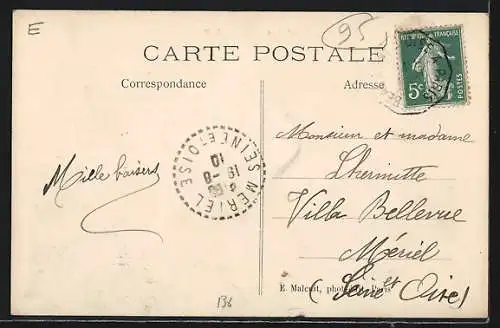 E
95
CARTE POSTALE
RÉPUBLIQUE FRANÇAISE
5c
POSTES
Correspondance
Adresse
PARIS
MERIEL
SEINE ET OISE
19-8
10
Mille baisers
Monsieur et madame
Lhermitte
Villa Bellevue
Mériel
(Seine et Oise)
E. Malcuit, phot. Paris
136